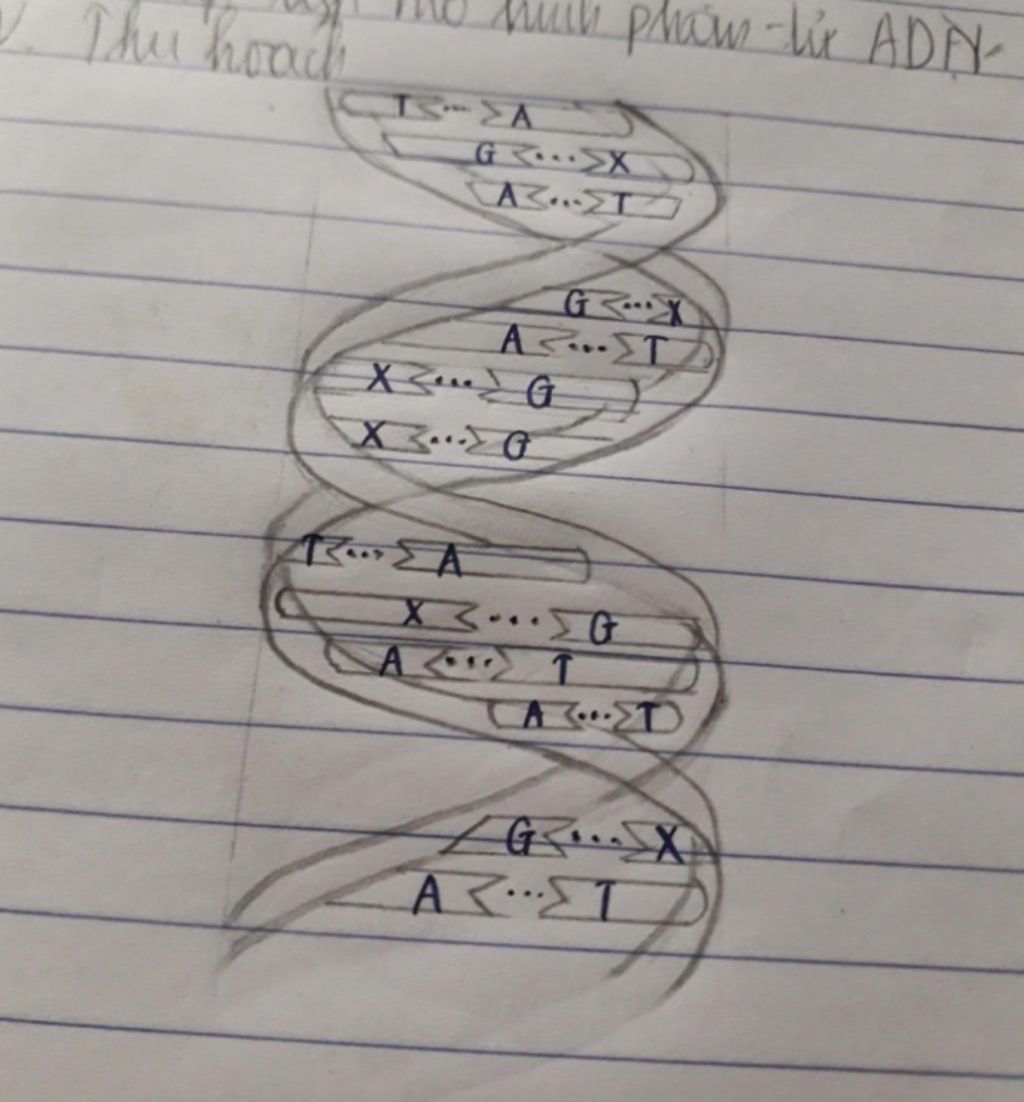 mô hình phân tử ADN
V. Thu hoạch
T A
G X
A T
G X
A T
X G
X G
T A
X G
A T
A T
G X
A T